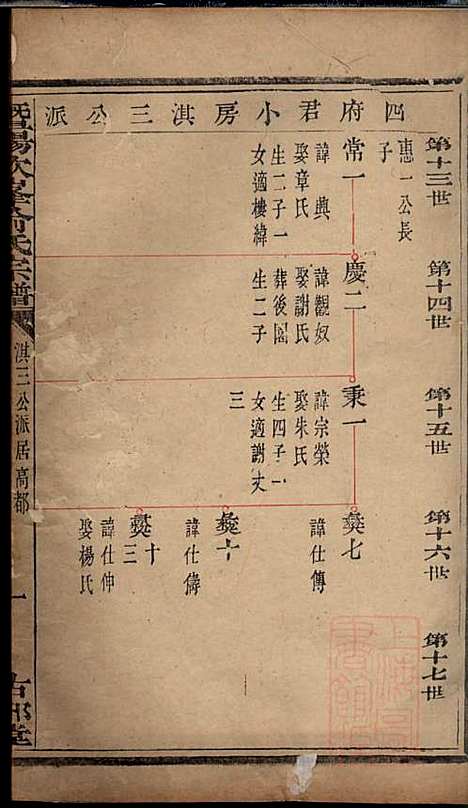 四府君小房淇三公派
第十三世
惠一公長子
常一
諱典
娶章氏
生二子一
女適樓緯
第十四世
慶二
諱觀奴
娶謝氏
葬後園
生二子
第十五世
秉一
諱宗榮
娶朱氏
生四子一
女適謝文
三
第十六世
諱仕傳
諱仕儔
諱仕伸
娶楊氏
第十七世
暨陽次峯俞氏宗譜
淇三公派居高都
一